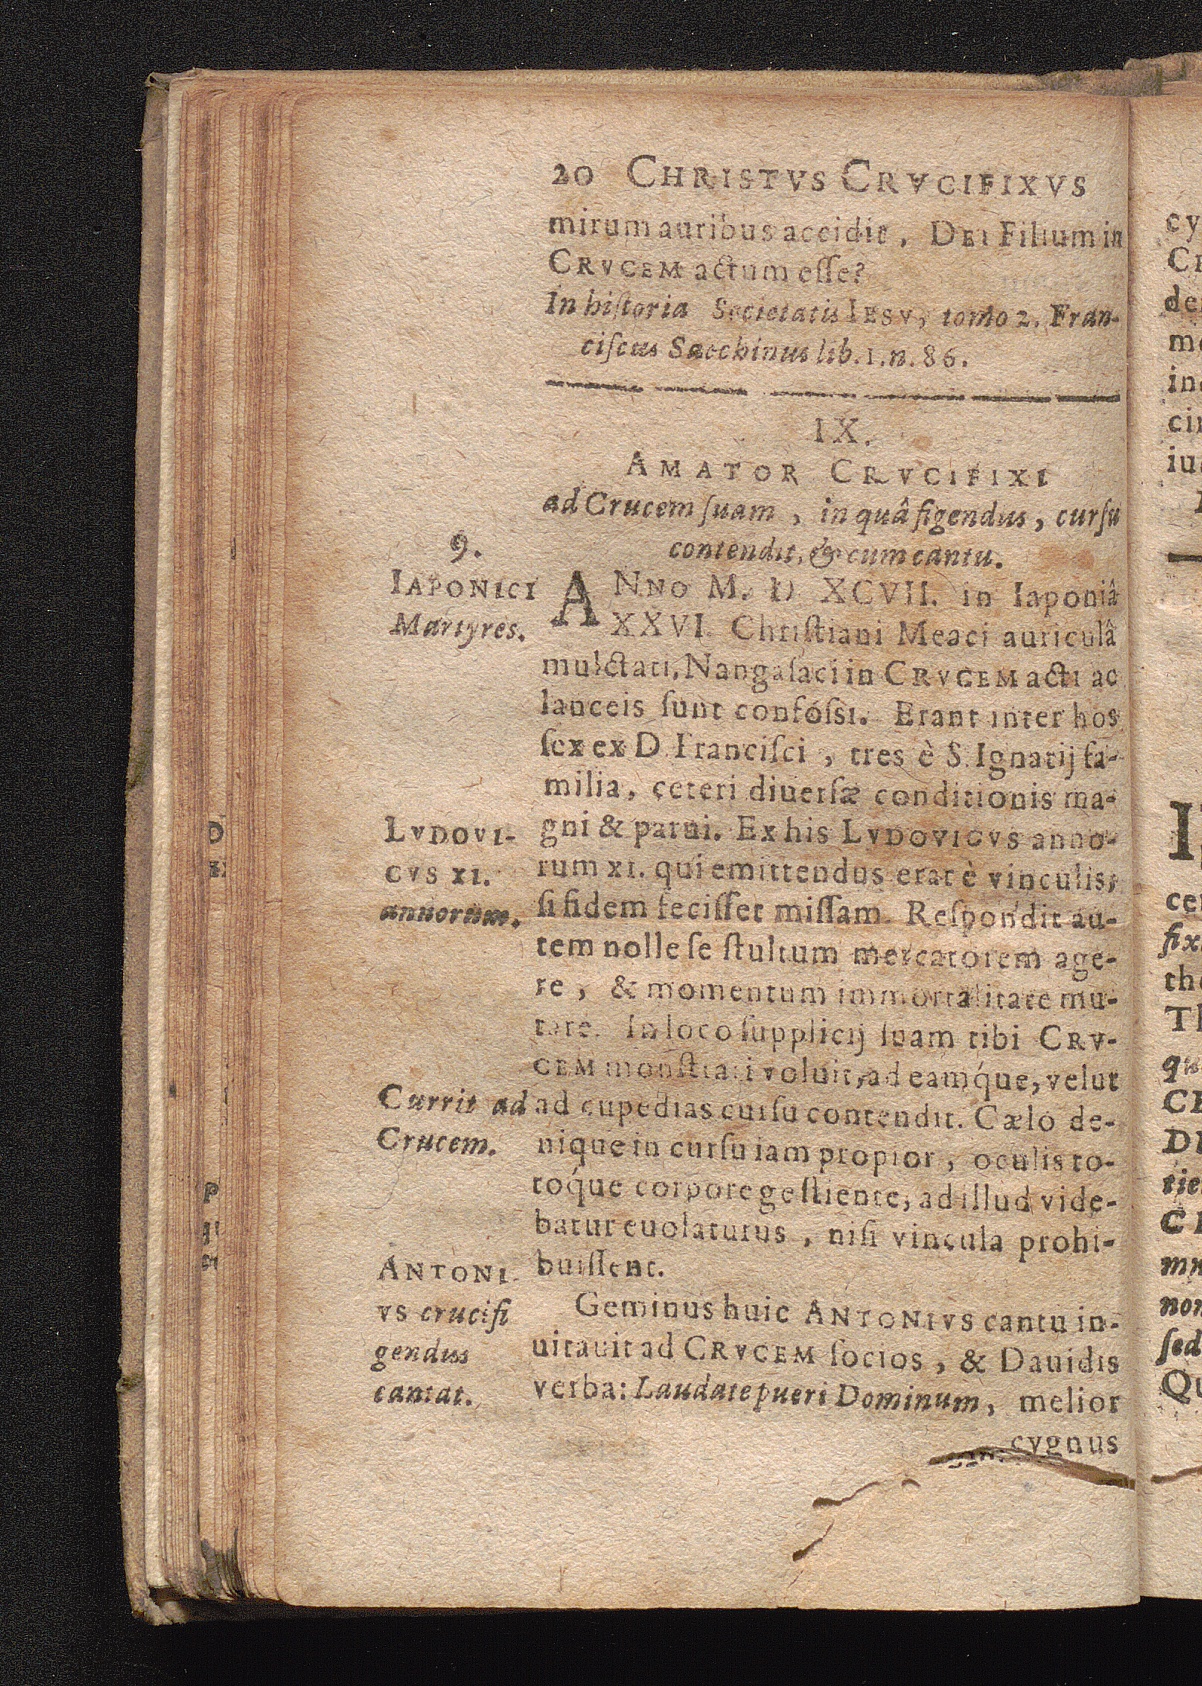 20 CHRISTVS CRVCIFIXVS
mirum auribus accidit, DEI Filium in
CRVCEM actum esse?
In historia Societatis IESV, tomo 2. Fran-
ciscus Sacchinus lib. 1. n. 86.
IX.
AMATOR CRVCIFIXI
ad Crucem suam, in quâ figendus, cursu
contendit, & cum cantu.
9.
IAPONICI
Martyres.
ANNO M. D XCVII. in Iaponiâ
XXVI. Christiani Meaci auriculâ
mulctati, Nangasaci in CRVCEM acti ac
lanceis sunt confossi. Erant inter hos
sex ex D. Francisci, tres è S. Ignatij fa-
milia, ceteri diuersæ conditionis ma-
gni & parui. Ex his LVDOVICVS anno-
rum XI. qui emittendus erat è vinculis,
si fidem fecisset missam. Respondit au-
tem nolle se stultum mercatorem age-
re, & momentum immortalitate mu-
tare. In loco supplicij suam tibi CRV-
CEM monstrari voluit, ad eamque, velut
ad cupedias cursu contendit. Cælo de-
nique in cursu iam propior, oculis to-
tóque corpore gestiente, ad illud vide-
batur euolaturus, nisi vincula prohi-
buissent.
LVDOVI-
CVS XI.
annorum.
Currit ad
Crucem.
ANTONI-
VS crucifi
gendus
cantat.
Geminus huic ANTONIVS cantu in-
uitauit ad CRVCEM socios, & Dauidis
verba: Laudate pueri Dominum, melior
cygnus